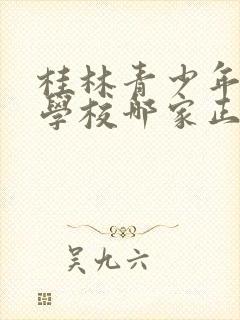 桂林青少年
學校哪家正
吴九六